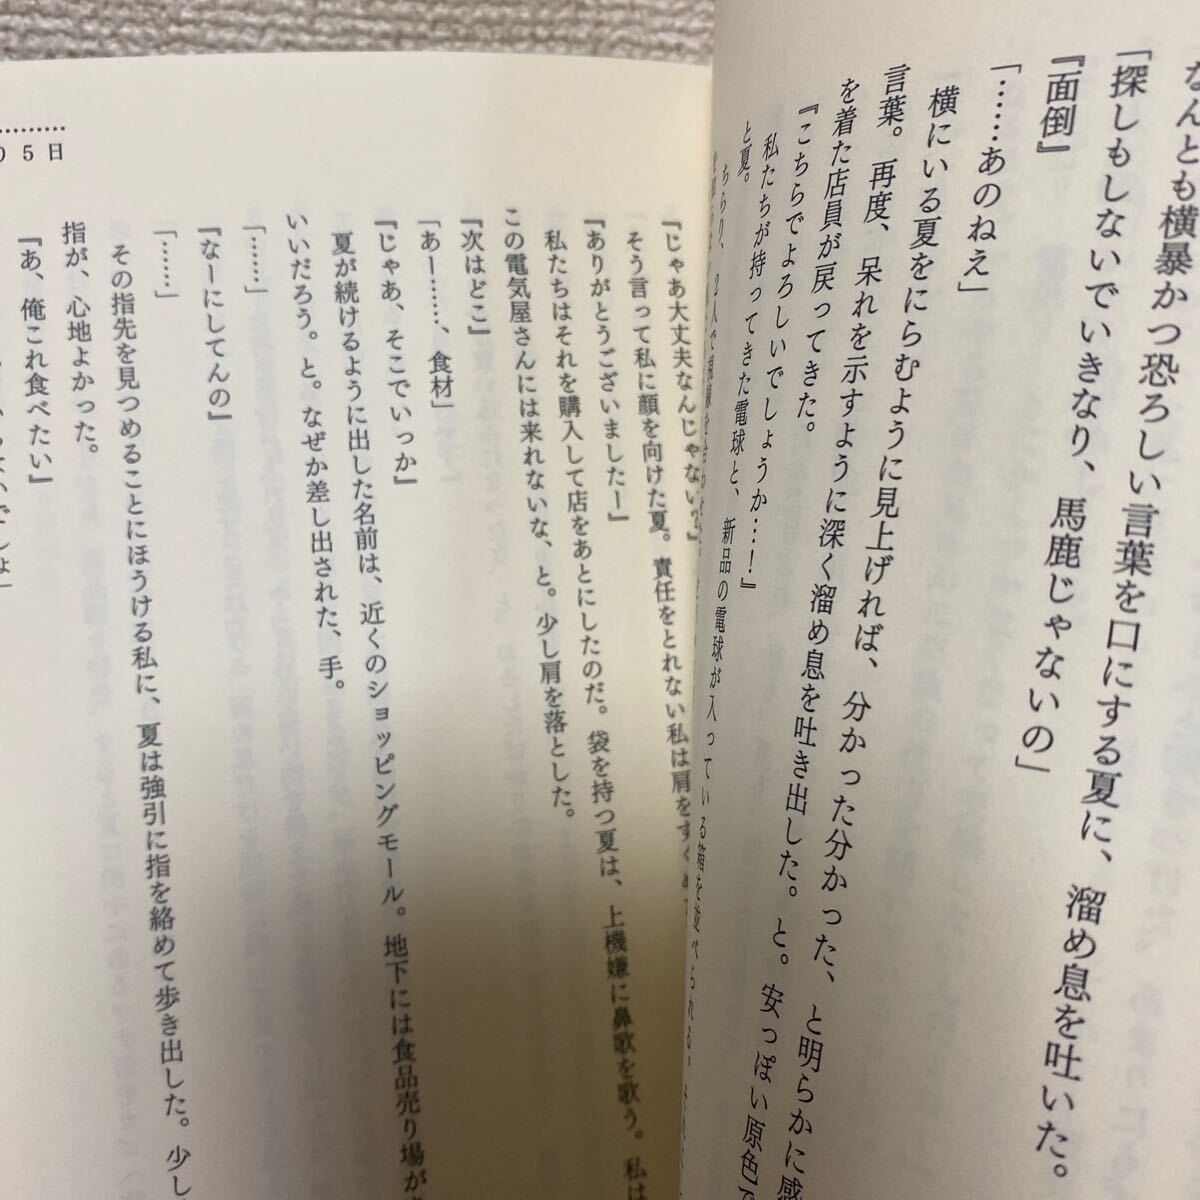 なんとも横暴かつ恐ろしい言葉を口にする夏に、溜め息を吐いた。
「探しもしないでいきなり、馬鹿じゃないの」
『面倒』
「……あのねえ」
横にいる夏をにらむように見上げれば、分かった分かった、と明らかに感
言葉。再度、呆れを示すように深く溜め息を吐き出した。と。安っぽい原色で
を着た店員が戻ってきた。
『こちらでよろしいでしょうか…！』
私たちが持ってきた電球と、新品の電球が入っている箱を並べられる。
と夏。
ちらり、2人で視線を合わせ
『じゃあ大丈夫なんじゃない？』
そう言って私に顔を向けた夏。責任をとれない私は肩をすくめ
『ありがとうございましたー』
私たちはそれを購入して店をあとにしたのだ。袋を持つ夏は、上機嫌に鼻歌を歌う。私は
この電気屋さんには来れないな、と。少し肩を落とした。
『次はどこ』
「あー……、食材」
『じゃあ、そこでいっか』
夏が続けるように出した名前は、近くのショッピングモール。地下には食品売り場が
いいだろう。と。なぜか差し出された、手。
「……」
『なーにしてんの』
「……」
その指先を見つめることにほうける私に、夏は強引に指を絡めて歩き出した。少し
指が、心地よかった。
『あ、俺これ食べたい』
いでしょ」
05日